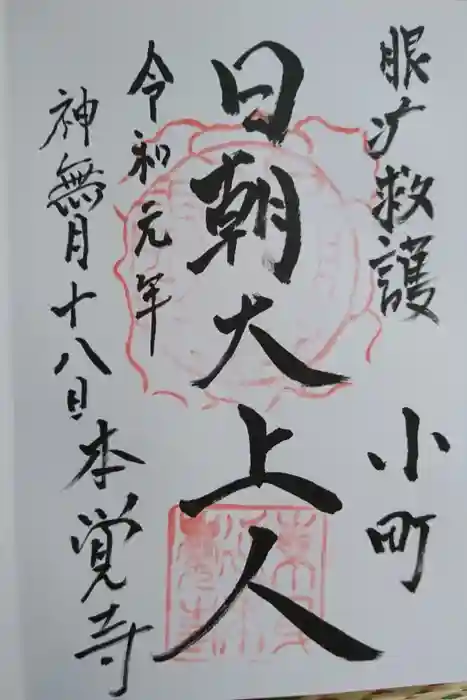 眼病救護
小町
日朝大上人
令和元年
神無月十八日
本覚寺